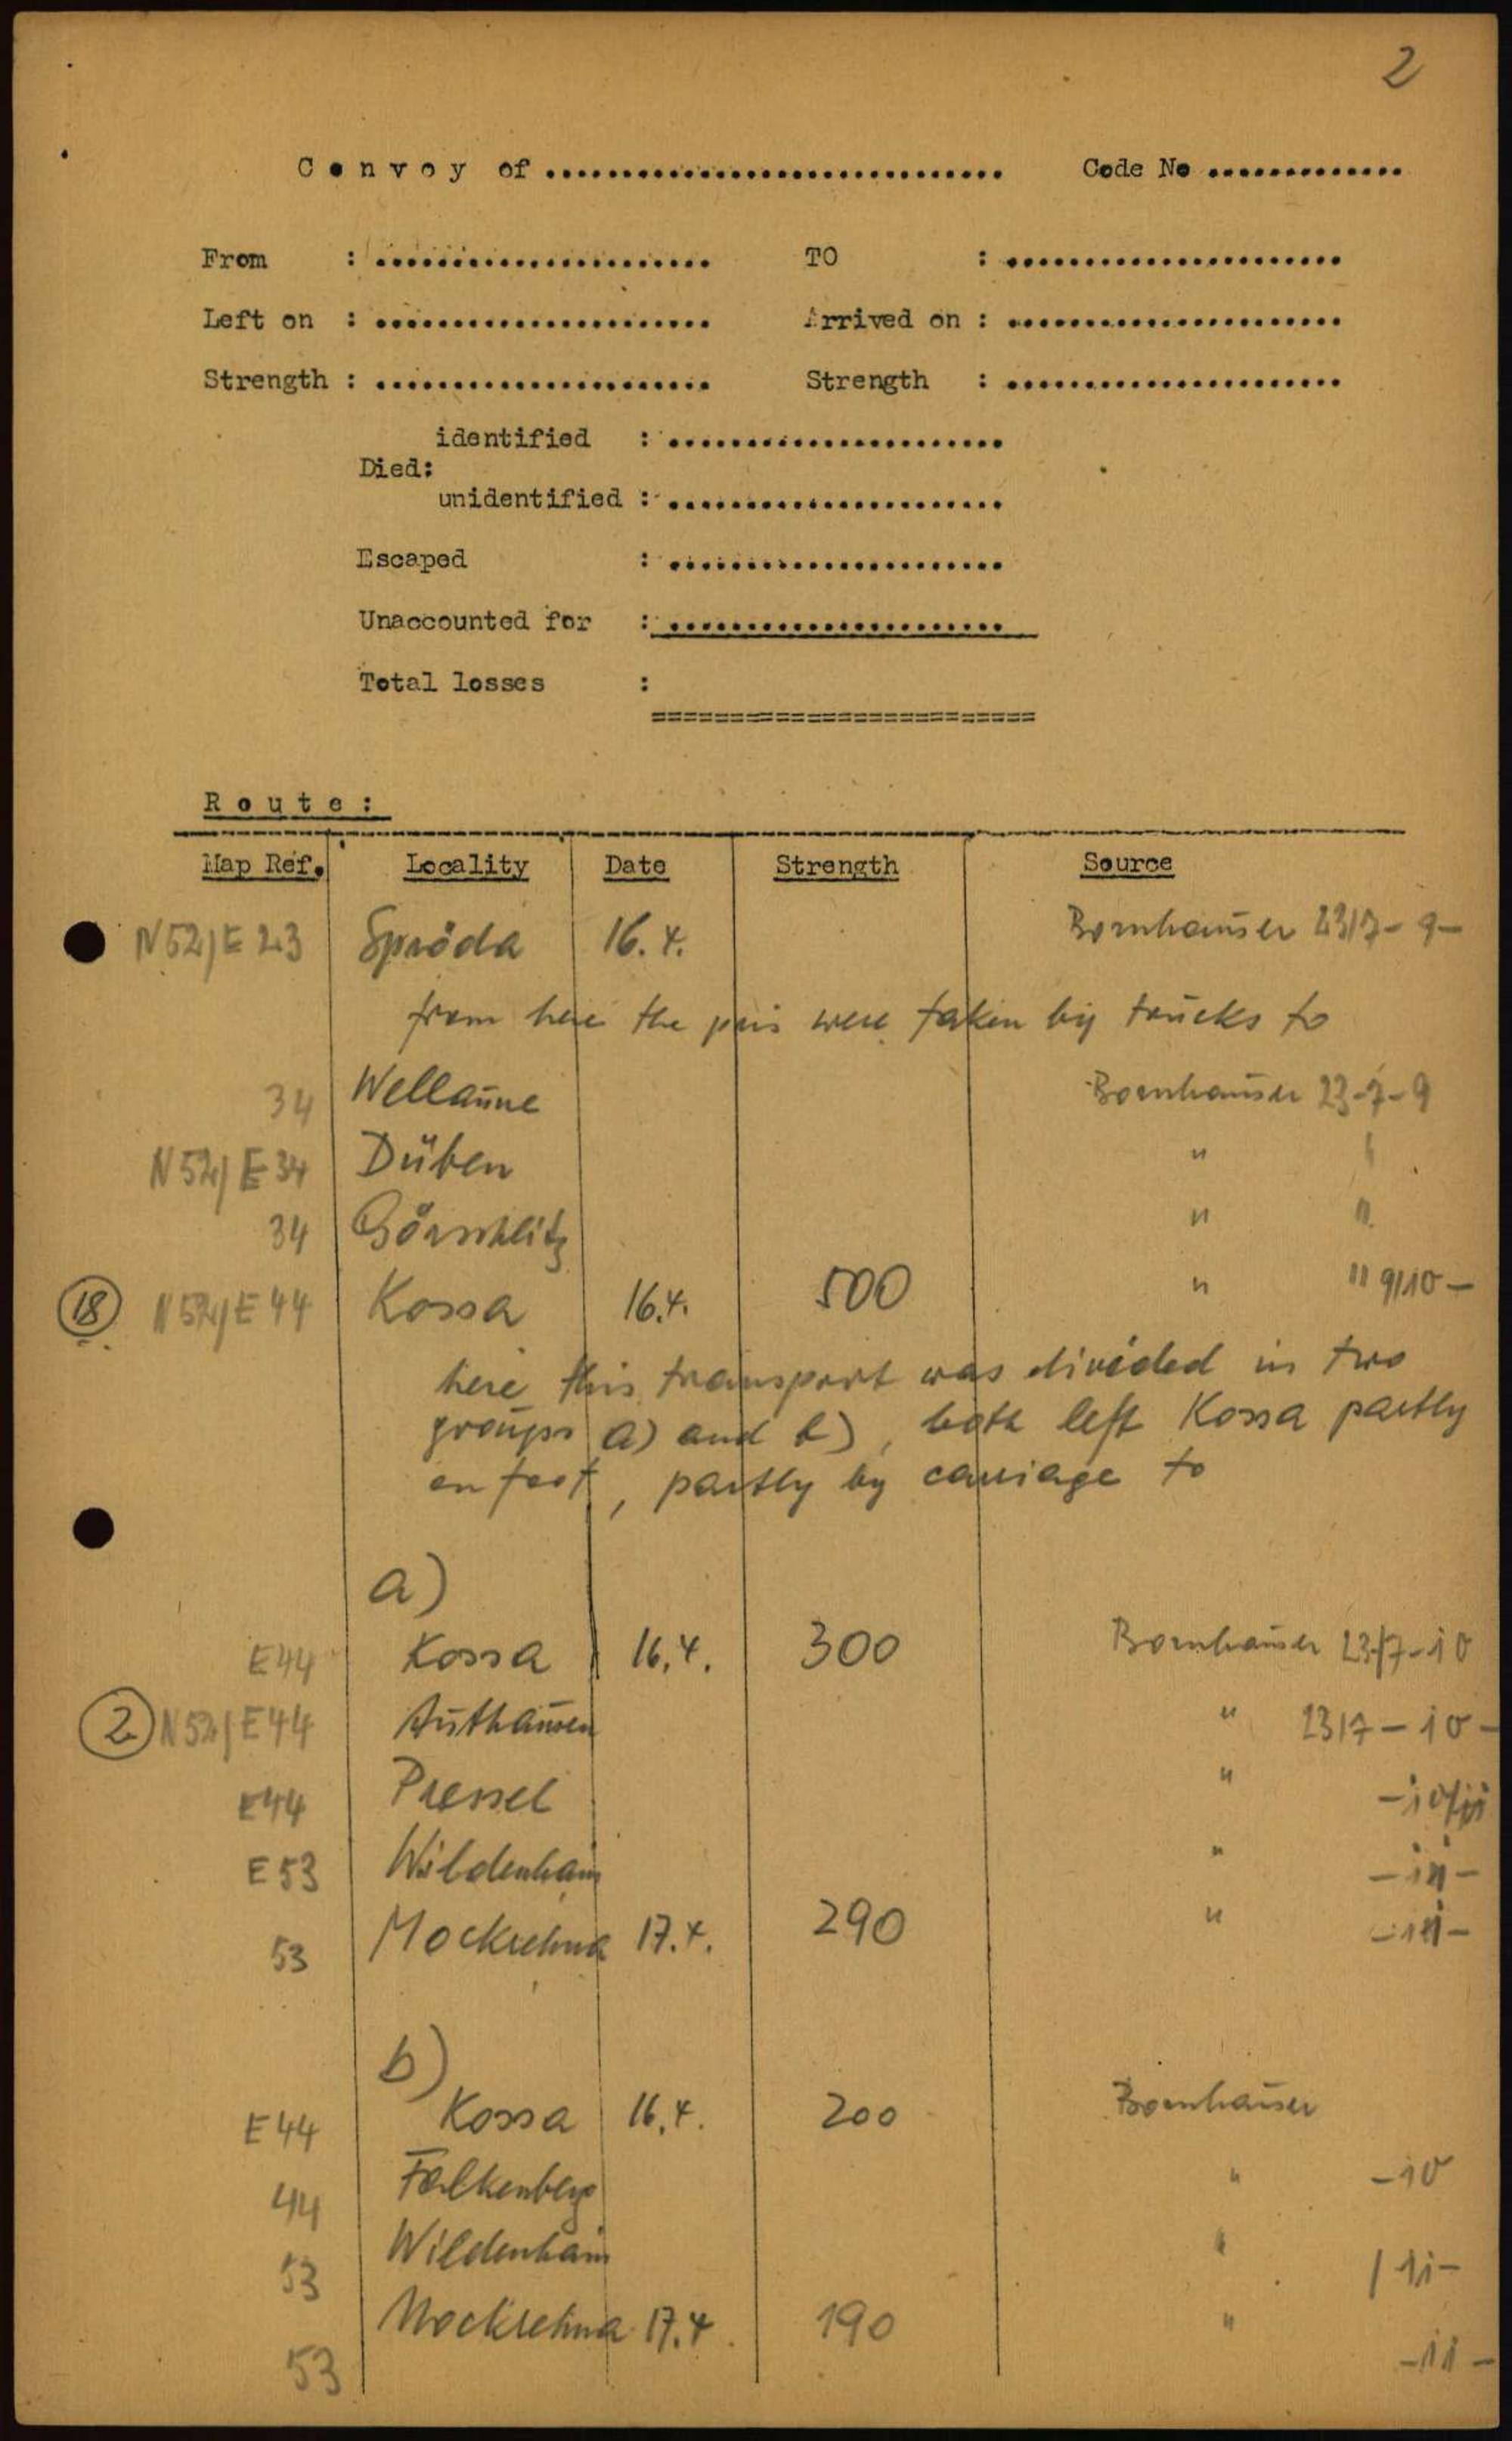 2
Convoy of .............................. Code No .............
From : ...................... TO : ......................
Left on : ...................... Arrived on : ......................
Strength : ...................... Strength : ......................
identified : ......................
Died:
unidentified : ......................
Escaped : ......................
Unaccounted for : ......................
Total losses :
========================
Route:
Map Ref. Locality Date Strength Source
N52/E23 Spröda 16.4. Bornhauser 23/7-9-
from here the pris were taken by trucks to
34 Wellaune Bornhauser 23-7-9
N52/E34 Düben "
34 Görschlitz " "
18 N52/E44 Kossa 16.4. 500 " " 9/10-
here this transport was divided in two
groups a) and b), both left Kossa partly
on foot, partly by carriage to
a)
E44 Kossa 16.4. 300 Bornhauser 23/7-10
2 N52/E44 Authausen " 23/7-10-
E44 Pressel " -10/11
E53 Wildenhain " -11-
53 Mockrehna 17.4. 290 " -11-
b)
E44 Kossa 16.4. 200 Bornhauser
44 Falkenberg " -10
53 Wildenhain " /11-
53 Mockrehna 17.4. 190 " -11-